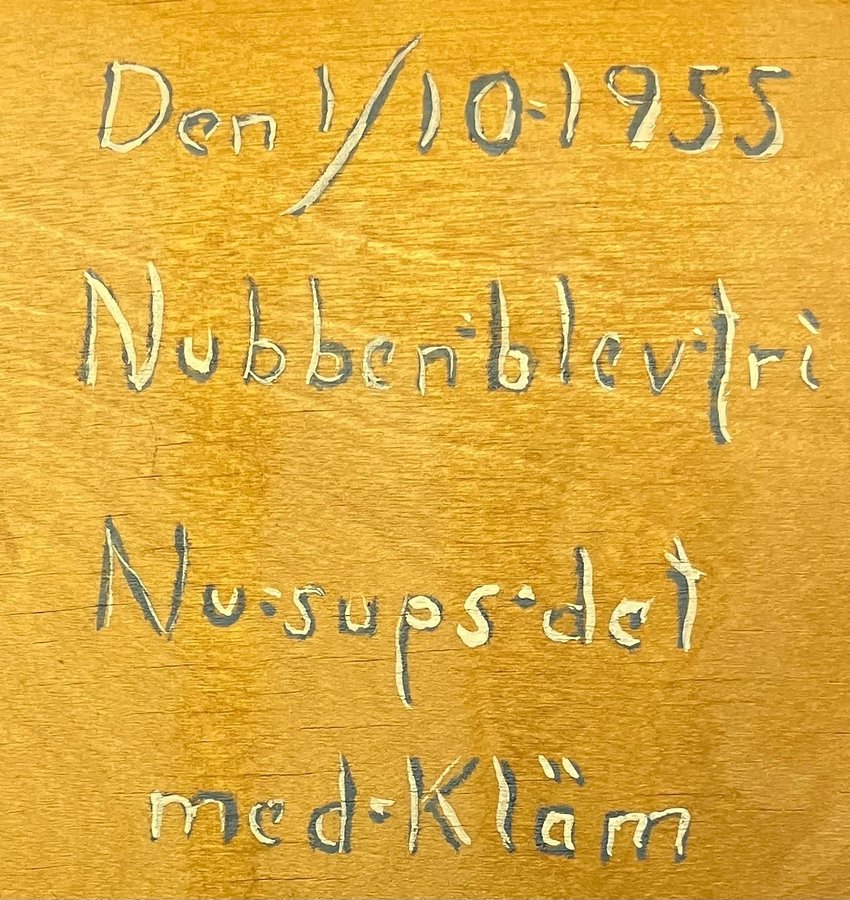 Den 1/10·1955
Nubben·blev·fri
Nu·sups·det
med·Kläm